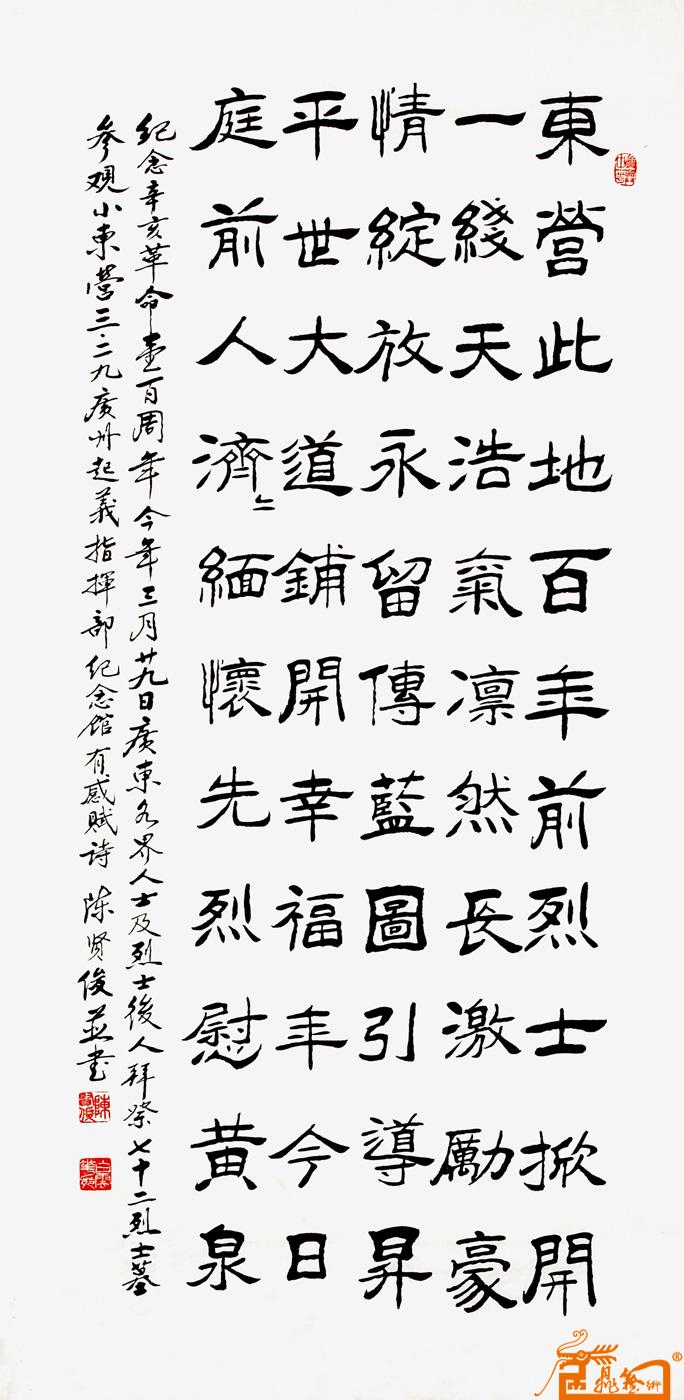 東營此地百年前烈士掀開
一綫天浩氣凛然長激勵豪
情綻放永留傳藍圖引導昇
平世大道鋪開幸福年今日
庭前人濟〻緬懷先烈慰黄泉
纪念辛亥革命壹百周年今年三月廿九日廣東各界人士及烈士後人拜祭七十二烈士墓
參观小東營三·二九廣州起義指揮部纪念馆有感赋诗 陈贤俊並书